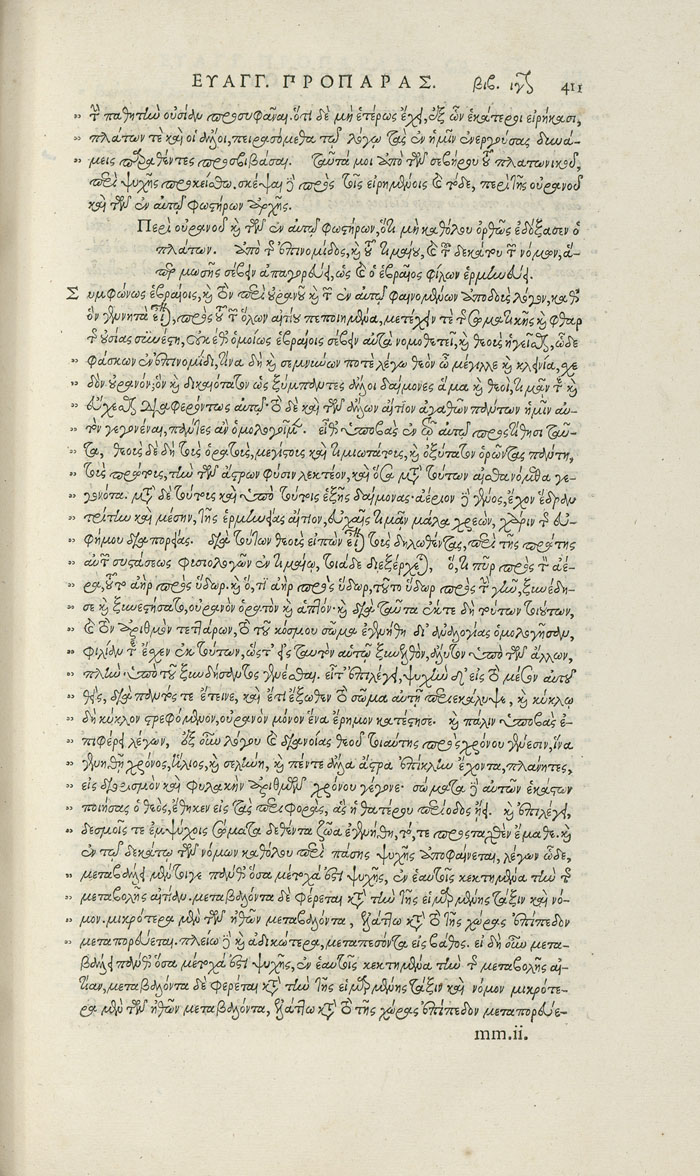 ΕΥΑΓΓ. ΠΡΟΠΑΡΑΣ. βιβ. ιγ 411
τῇ παθητικὴν οὐσίαν προσυφᾶναι. ὅτι δὲ μὴ ἑτέρως ἔχει, ἐξ ὧν ἑκάτεροι εἰρήκασι,
πλάτων τὲ καὶ οἱ ἄλλοι, πειρασόμεθα τῷ λόγῳ τὰς ἐν ἡμῖν ἐνεργούσας δυνά-
μεις παραθέντες προσβιβάσαι. ταῦτά μοι ἀπὸ τῶν σεβήρου τοῦ πλατωνικοῦ,
περὶ ψυχῆς προκείσθω. σκέψαι δὲ πρὸς τοῖς εἰρημένοις καὶ τόδε, περὶ τῆς οὐρανοῦ
καὶ τῶν ἐν αὐτῷ φωστήρων ἀρχῆς.
Περὶ οὐρανοῦ καὶ τῶν ἐν αὐτῷ φωστήρων, ὅτι μὴ καθόλου ὀρθῶς ἐδόξασεν ὁ
πλάτων. ἀπὸ τοῦ ἐπινομίδος, καὶ τοῦ τιμαίου, καὶ τοῦ δεκάτου τῶν νόμων, ἅ-
περ μωσῆς σέβειν ἀπαγορεύει, ὡς καὶ ὁ ἑβραῖος φίλων ἑρμηνεύει.
Συμφώνως ἑβραίοις, καὶ τὸν περὶ οὐρανοῦ καὶ τῶν ἐν αὐτῷ φαινομένων ἀποδοὺς λόγον, καθ'
ὃν γενητὰ εἶναι, πρὸς τοῦ τῶν ὅλων αἰτίου πεποιημένα, μετέχειν τε τῆς σωματικῆς καὶ φθαρ
τῆς οὐσίας συνέστη, οὐκέθ' ὁμοίως ἑβραίοις σέβειν αὐτὰ νομοθετεῖ, καὶ θεοὺς ἡγεῖσθαι, ὧδε
φάσκων ἐν ἐπινομίδι, τίνα δὴ καὶ σεμνύνων ποτὲ λέγω θεὸν ὦ μέγιλλε καὶ κλεινία, σχε
δὸν οὐρανόν; ὃν καὶ δικαιότατον ὡς ξύμπαντες ἄλλοι δαίμονες ἅμα καὶ θεοὶ, τιμᾶν τὲ καὶ
εὔχεσθαι διαφερόντως αὐτῷ. τὸ δὲ καὶ τῶν ἄλλων αἴτιον ἀγαθῶν πάντων ἡμῖν αὐ-
τὸν γεγονέναι, πάντες ἂν ὁμολογοῖμεν. εἶθ' ὑποβὰς ἐν τῷ αὐτῷ προστίθησι ταῦ-
τα, θεοὺς δὲ δὴ τοὺς ὁρατοὺς, μεγίστους καὶ τιμιωτάτους, καὶ ὀξύτατον ὁρῶντας πάντη,
τοὺς πρώτους, τὴν τῶν ἄστρων φύσιν λεκτέον, καὶ ὅσα μετὰ τούτων αἰσθανόμεθα γε-
γονότα. μετὰ δὲ τούτους καὶ ὑπὸ τούτοις ἑξῆς δαίμονας· ἀέριον δὲ γένος, ἔχον ἕδραν
τρίτην καὶ μέσην, τῆς ἑρμηνείας αἴτιον, εὐχαῖς τιμᾶν μάλα χρεὼν, χάριν τῆς εὐ-
φήμου διαπορείας. διὰ τούτων θεοὺς εἰπὼν εἶναι τοὺς δηλωθέντας, περὶ τῆς πρώτης
αὐτῶν συστάσεως φυσιολογῶν ἐν τιμαίῳ, τοιάδε διεξέρχεται, ὅ,τι πῦρ πρὸς τὸν ἀέ-
ρα, τοῦτο ἀὴρ πρὸς ὕδωρ. καὶ ὅ,τι ἀὴρ πρὸς ὕδωρ, τοῦτο ὕδωρ πρὸς τὴν γῆν, ξυνέδη-
σε καὶ ξυνεστήσατο, οὐρανὸν ὁρατὸν καὶ ἁπτόν· καὶ διὰ ταῦτα ἔκ τε δὴ τούτων τοιούτων,
καὶ τὸν ἀριθμὸν τεττάρων, τὸ τοῦ κόσμου σῶμα ἐγεννήθη δι' ἀναλογίας ὁμολογῆσαν,
φιλίαν τὲ ἔχειν ἐκ τούτων, ὥστ' εἰς ταυτὸν αὐτῷ ξυνελθὸν, ἄλυτον ὑπὸ τῶν ἄλλων,
πλὴν ὑπὸ τοῦ ξυνδήσαντος γενέσθαι. εἶτ' ἐπιλέγει, ψυχὴν δ' εἰς τὸ μέσον αὐτοῦ
θεὶς, διὰ παντός τε ἔτεινε, καὶ ἔτι ἔξωθεν τὸ σῶμα αὐτῇ περιεκάλυψε, καὶ κύκλῳ
δὴ κύκλον στρεφόμενον, οὐρανὸν μόνον ἕνα ἔρημον κατέστησε. καὶ πάλιν ὑποβὰς ἐ-
πιφέρει λέγων, ἐξ οὖν λόγου καὶ διανοίας θεοῦ τοιαύτης πρὸς χρόνου γένεσιν, ἵνα
γεννηθῇ χρόνος, ἥλιος, καὶ σελήνη, καὶ πέντε ἄλλα ἄστρα ἐπίκλην ἔχοντα, πλανῆτες,
εἰς διορισμὸν καὶ φυλακὴν ἀριθμῶν χρόνου γέγονε· σώματα δὲ αὐτῶν ἑκάστων
ποιήσας ὁ θεὸς, ἔθηκεν εἰς τὰς περιφορὰς, ἃς ἡ θατέρου περίοδος ᾔει. καὶ ἐπιλέγει,
δεσμοῖς τε ἐμψύχοις σώματα δεθέντα ζῶα ἐγεννήθη, τό, τε προσταχθὲν ἔμαθε. καὶ
ἐν τῷ δεκάτῳ τῶν νόμων καθόλου περὶ πάσης ψυχῆς ἀποφαίνεται, λέγων ὧδε,
μεταβάλλει μὲν τοίγε πάνθ' ὅσα μέτοχά ἐστι ψυχῆς, ἐν ἑαυτοῖς κεκτημένα τὴν τῆς
μεταβολῆς αἰτίαν. μεταβάλλοντα δὲ φέρεται κατὰ τὴν τῆς εἱμαρμένης τάξιν καὶ νό-
μον. μικρότερα μὲν τῶν ἠθῶν μεταβάλλοντα, ἐλάττω κατὰ τὸ τῆς χώρας ἐπίπεδον
μεταπορεύεται. πλείω δὲ καὶ ἀδικώτερα, μεταπεσόντα εἰς βάθος. εἰ δὴ οὖν μετα-
βάλλει πάνθ' ὅσα μέτοχά ἐστι ψυχῆς, ἐν ἑαυτοῖς κεκτημένα τὴν τῆς μεταβολῆς αἰ-
τίαν, μεταβάλλοντα δὲ φέρεται κατὰ τὴν τῆς εἱμαρμένης τάξιν καὶ νόμον μικρότε-
ρα μὲν τῶν ἠθῶν μεταβάλλοντα, ἐλάττω κατὰ τὸ τῆς χώρας ἐπίπεδον μεταπορεύε-
mm.ii.